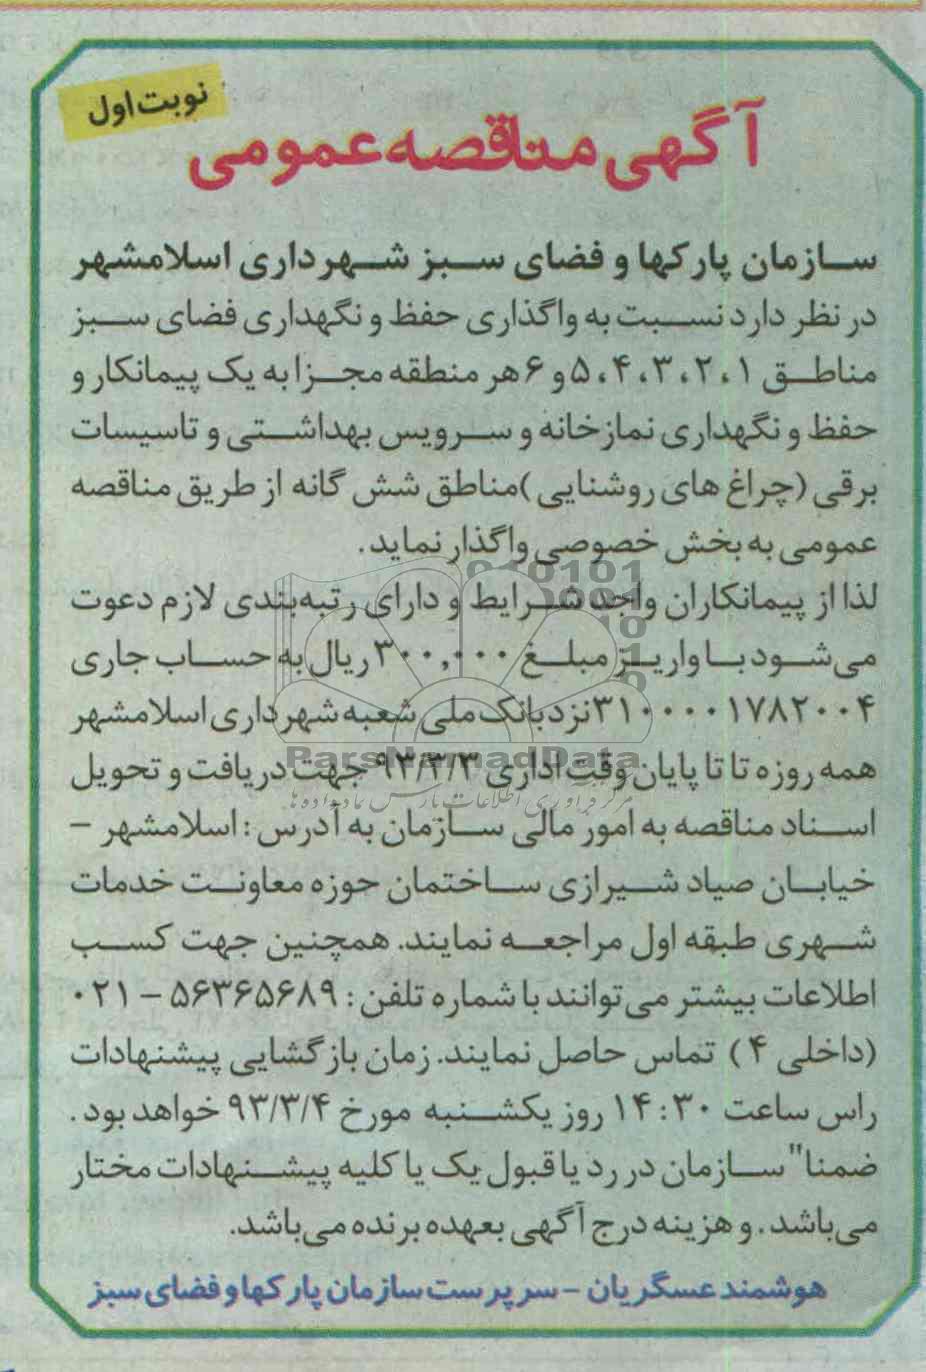 نوبت اول
آگهی مناقصه عمومی
سازمان پارکها و فضای سبز شهرداری اسلامشهر
در نظر دارد نسبت به واگذاری حفظ و نگهداری فضای سبز
مناطق ۱، ۲، ۳، ۴، ۵ و ۶ هر منطقه مجزا به یک پیمانکار و
حفظ و نگهداری نمازخانه و سرویس بهداشتی و تاسیسات
برقی (چراغ های روشنایی) مناطق شش گانه از طریق مناقصه
عمومی به بخش خصوصی واگذار نماید.
لذا از پیمانکاران واجد شرایط و دارای رتبه‌بندی لازم دعوت
می‌شود با واریز مبلغ ۳۰۰,۰۰۰ ریال به حساب جاری
۳۱۰۰۰۰۱۷۸۲۰۰۴ نزد بانک ملی شعبه شهرداری اسلامشهر
همه روزه تا تا پایان وقت اداری ۹۳/۳/۳ جهت دریافت و تحویل
ParsNamadData
مرکز فرآوری اطلاعات پارس نماد داده ها
اسناد مناقصه به امور مالی سازمان به آدرس: اسلامشهر –
خیابان صیاد شیرازی ساختمان حوزه معاونت خدمات
شهری طبقه اول مراجعه نمایند. همچنین جهت کسب
اطلاعات بیشتر می‌توانند با شماره تلفن: ۵۶۳۶۵۶۸۹ – ۰۲۱
(داخلی ۴) تماس حاصل نمایند. زمان بازگشایی پیشنهادات
راس ساعت ۱۴:۳۰ روز یکشنبه مورخ ۹۳/۳/۴ خواهد بود.
ضمنا" سازمان در رد یا قبول یک یا کلیه پیشنهادات مختار
می‌باشد. و هزینه درج آگهی بعهده برنده می‌باشد.
هوشمند عسگریان – سرپرست سازمان پارکها و فضای سبز